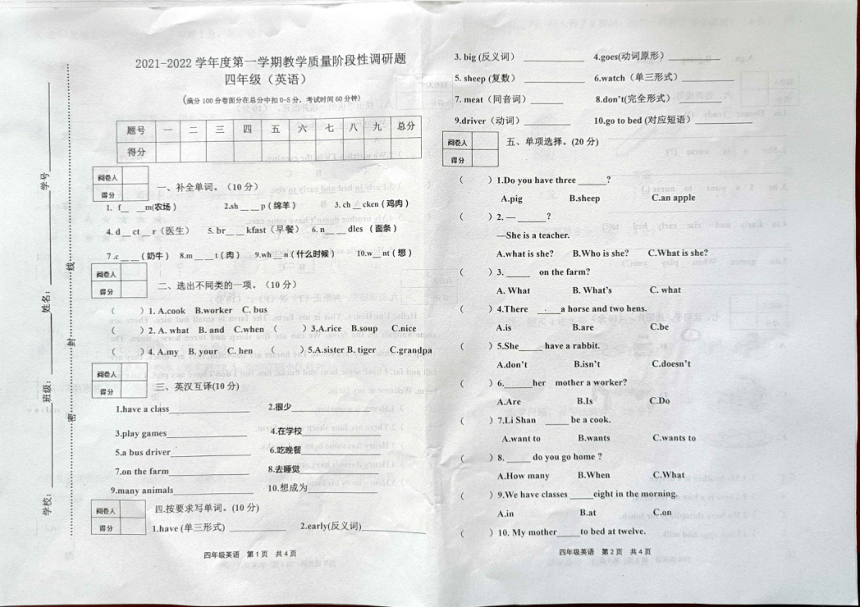 2021-2022 学年度第一学期教学质量阶段性调研题
四年级（英语）
(满分 100 分卷面分在总分中扣 0-5 分，考试时间 60 分钟)
题号 一 二 三 四 五 六 七 八 九 总分
得分
学校：
班级：
姓名：
学号
密 封 线
阅卷人
得分
一、补全单词。（10 分）
1. f__ __m(农场) 2.sh __ __ p（绵羊） 3. ch __ cken（鸡肉）
4. d__ ct__ r（医生） 5. br__ __ kfast（早餐） 6. n__ __ dles （面条）
7 .c __ __（奶牛） 8.m __ __ t（肉） 9.wh__n（什么时候） 10.w__ nt（想）
阅卷人
得分
二、选出不同类的一项。（10 分）
（ ）1. A.cook B.worker C. bus
（ ）2. A. what B. and C.when （ ）3.A.rice B.soup C.nice
（ ）4. A.my B. your C. hen （ ）5.A.sister B. tiger C.grandpa
阅卷人
得分
三、英汉互译(10 分)
1.have a class____________ 2.很少____________
3.play games____________ 4.在学校____________
5.a bus driver____________ 6.吃晚餐____________
7.on the farm____________ 8.去睡觉____________
9.many animals____________ 10.想成为____________
阅卷人
得分
四.按要求写单词。(10 分)
1.have (单三形式) ________ 2.early(反义词)________
四年级英语 第 1 页 共 4 页
3. big (反义词) ________ 4.goes(动词原形) ________
5. sheep (复数) ________ 6.watch（单三形式）________
7. meat（同音词）________ 8.don't(完全形式) ________
9.driver（动词）________ 10.go to bed (对应短语) ________
阅卷人
得分
五、单项选择。(20 分)
（ ）1.Do you have three _____?
A.pig B.sheep C.an apple
（ ）2. — _____?
—She is a teacher.
A.what is she? B.Who is she? C.What is she?
（ ）3. ____ on the farm?
A. What B. What's C. what
（ ）4.There ____a horse and two hens.
A.is B.are C.be
（ ）5.She____ have a rabbit.
A.don't B.isn't C.doesn't
（ ）6.____her mother a worker?
A.Are B.Is C.Do
（ ）7.Li Shan ____ be a cook.
A.want to B.wants C.wants to
（ ）8. ____ do you go home ?
A.How many B.When C.What
（ ）9.We have classes ____eight in the morning.
A.in B.at C.on
（ ）10. My mother____to bed at twelve.
四年级英语 第 2 页 共 4 页